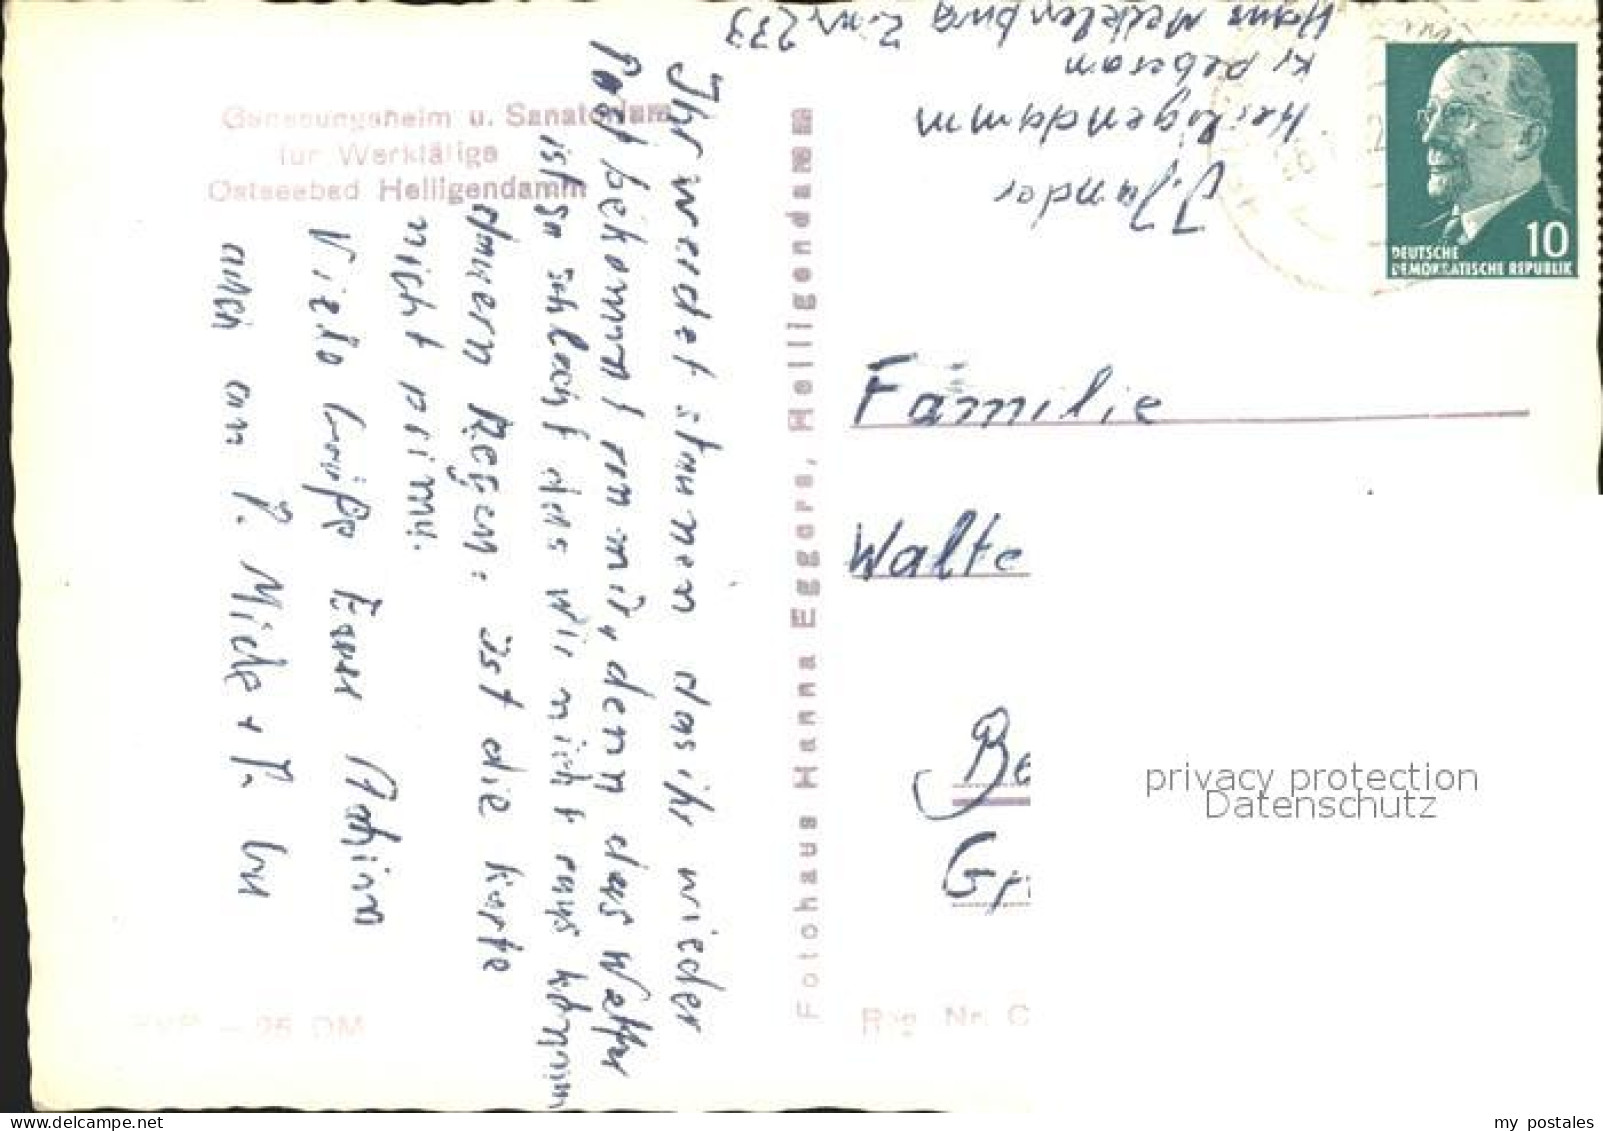 Genesungsheim u. Sanatorium
für Werktätige
Ostseebad Heiligendamm
Ihr werdet staunen das ihr wieder
Post bekommt von mir, denn das Wetter
ist so schlecht das wir nicht raus können
Regen. Ist die Karte
nicht prima.
Viele Grüße Euer Achim
auch an
EVP – 25 DM
Fotohaus Hanna Eggers, Heiligendamm
Reg. Nr. C
Heiligendamm
Haus Mecklenburg Zim. 233
DEUTSCHE
DEMOKRATISCHE REPUBLIK
10
Familie
Walte
Be
Gr
privacy protection
Datenschutz
my postales